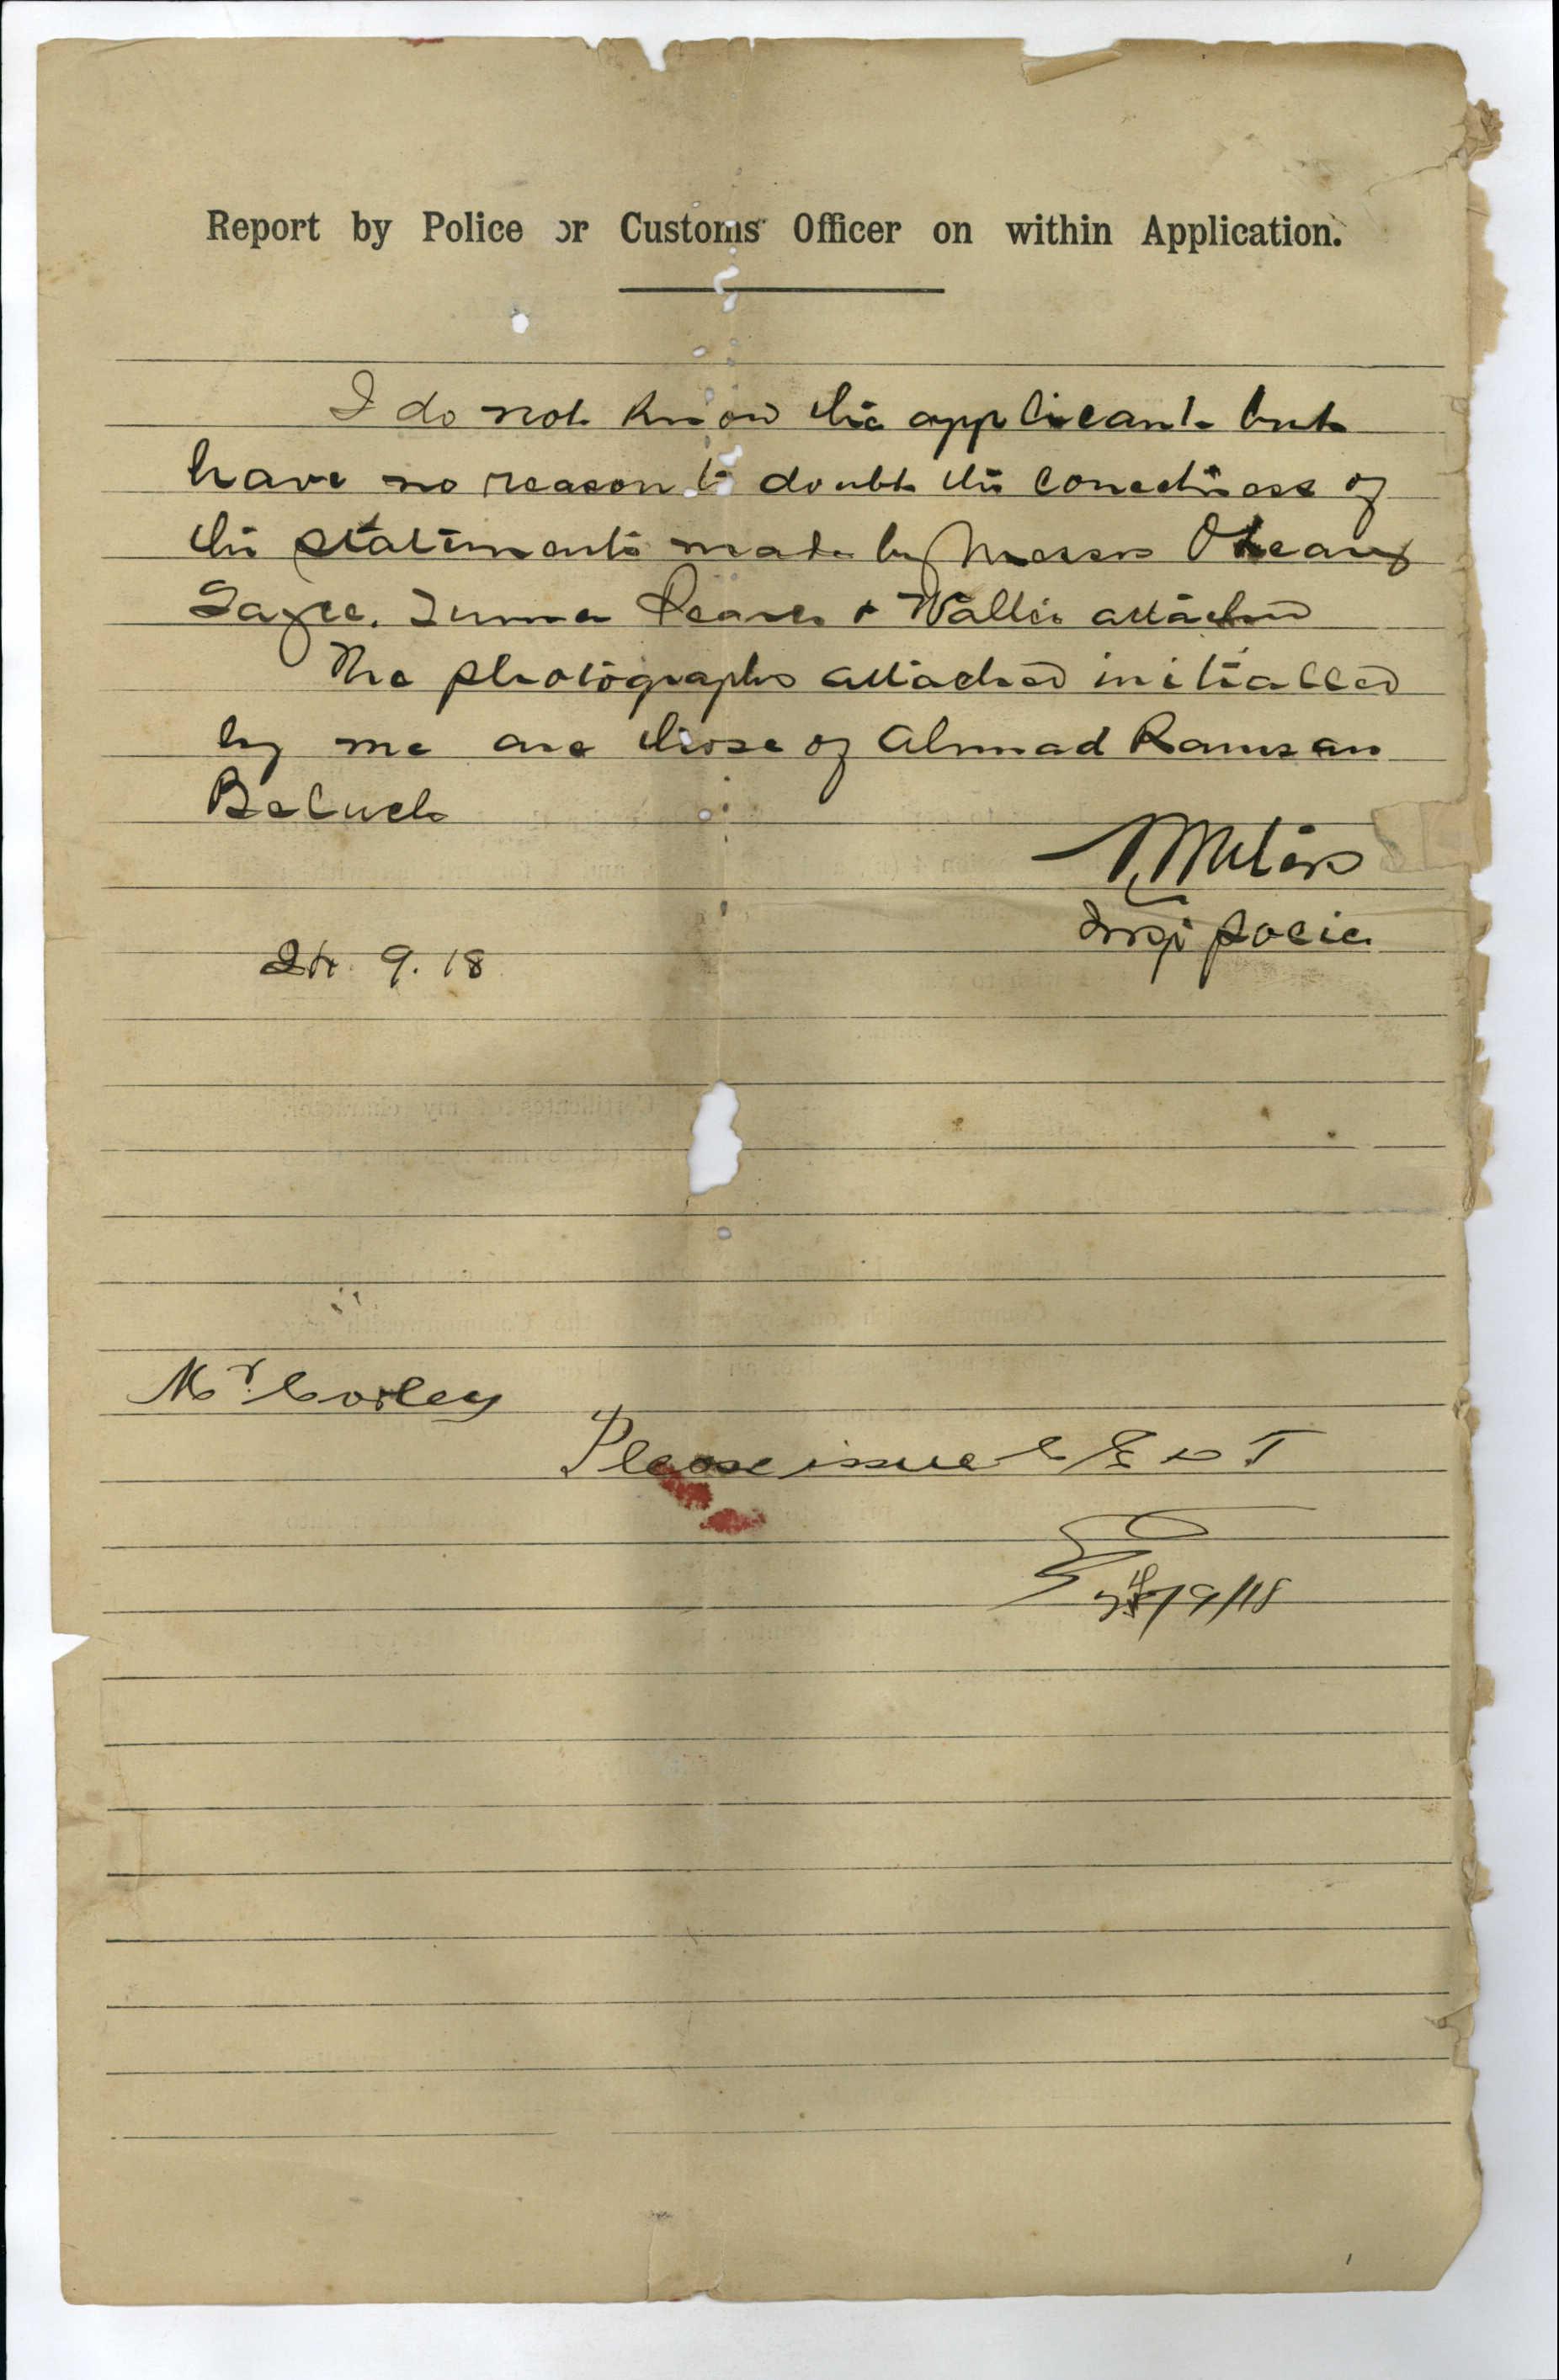 Report by Police or Customs Officer on within Application.
I do not know the applicant but
have no reason to doubt the correctness of
the statements made by Messrs
& Wallis attached
The photographs attached initialled
by me are those of Ahmad Ramzan
Baluch
Insp Police
24. 9. 18
Mr Corley
Please issue C E D T
24/9/18